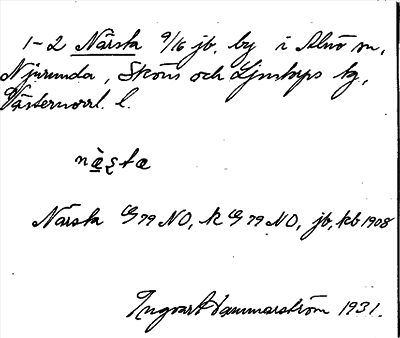 1-2 Närsta 9/16 jb. by i Alnö sn,
Njurunda, Sköns och Ljustorps tg,
Västernorrl. l.
næ̀ʂta
Närsta G 79 NO, k G 79 NO, jb, kb 1908
Ingvar Hammarström 1931.